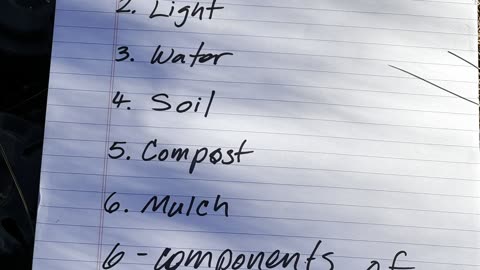 2. Light
3. Water
4. Soil
5. Compost
6. Mulch
6-components of